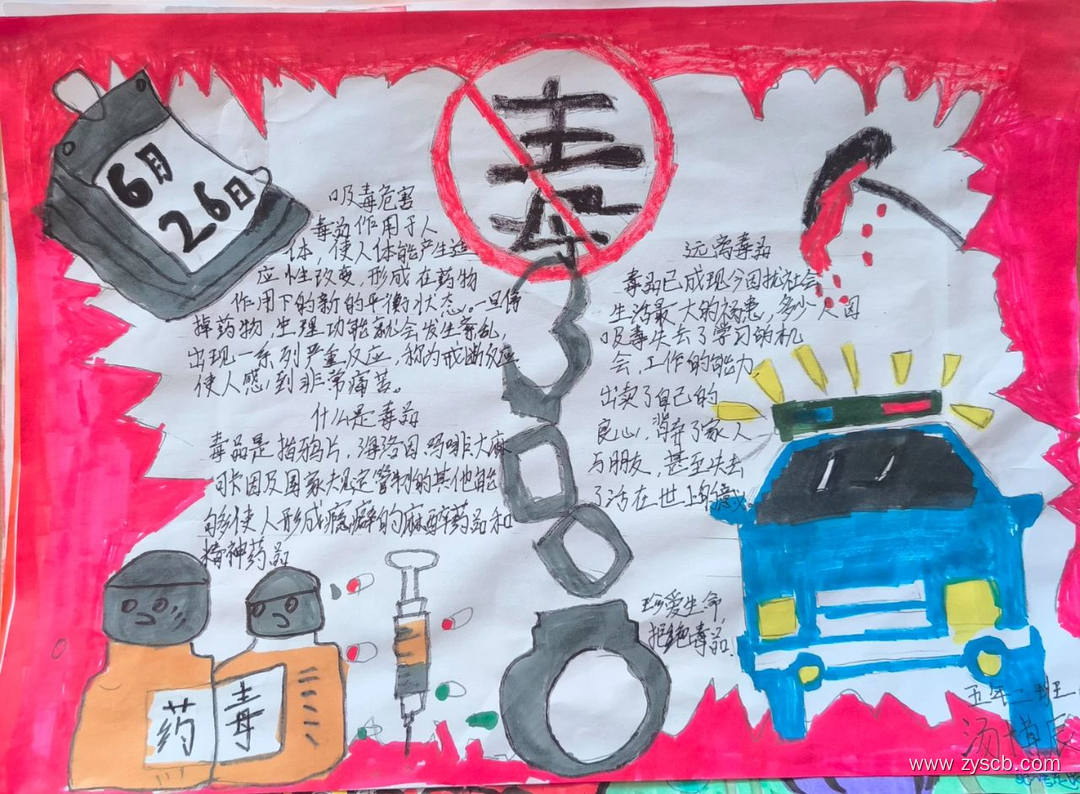 6月
26日
毒
吸毒危害
毒品作用于人
体，使人体能产生适
应性改变，形成在药物
作用下的新的平衡状态。一旦停
掉药物，生理功能就会发生紊乱，
出现一系列严重反应，称为戒断反应
使人感到非常痛苦。
什么是毒品
毒品是指鸦片，海洛因，吗啡，大麻
可卡因及国家规定管物的其他能
够使人形成瘾癖的麻醉药品和
精神药品
远离毒品
毒品已成现今困扰社会
生活最大的祸患，多少人因
吸毒失去了学习的机
会，工作的能力
出卖了自己的
良心，背弃了家人
与朋友，甚至失去
了活在世上的意义
珍爱生命，
拒绝毒品！
药
毒
五年二班
汤博辰
www.zyscb.com